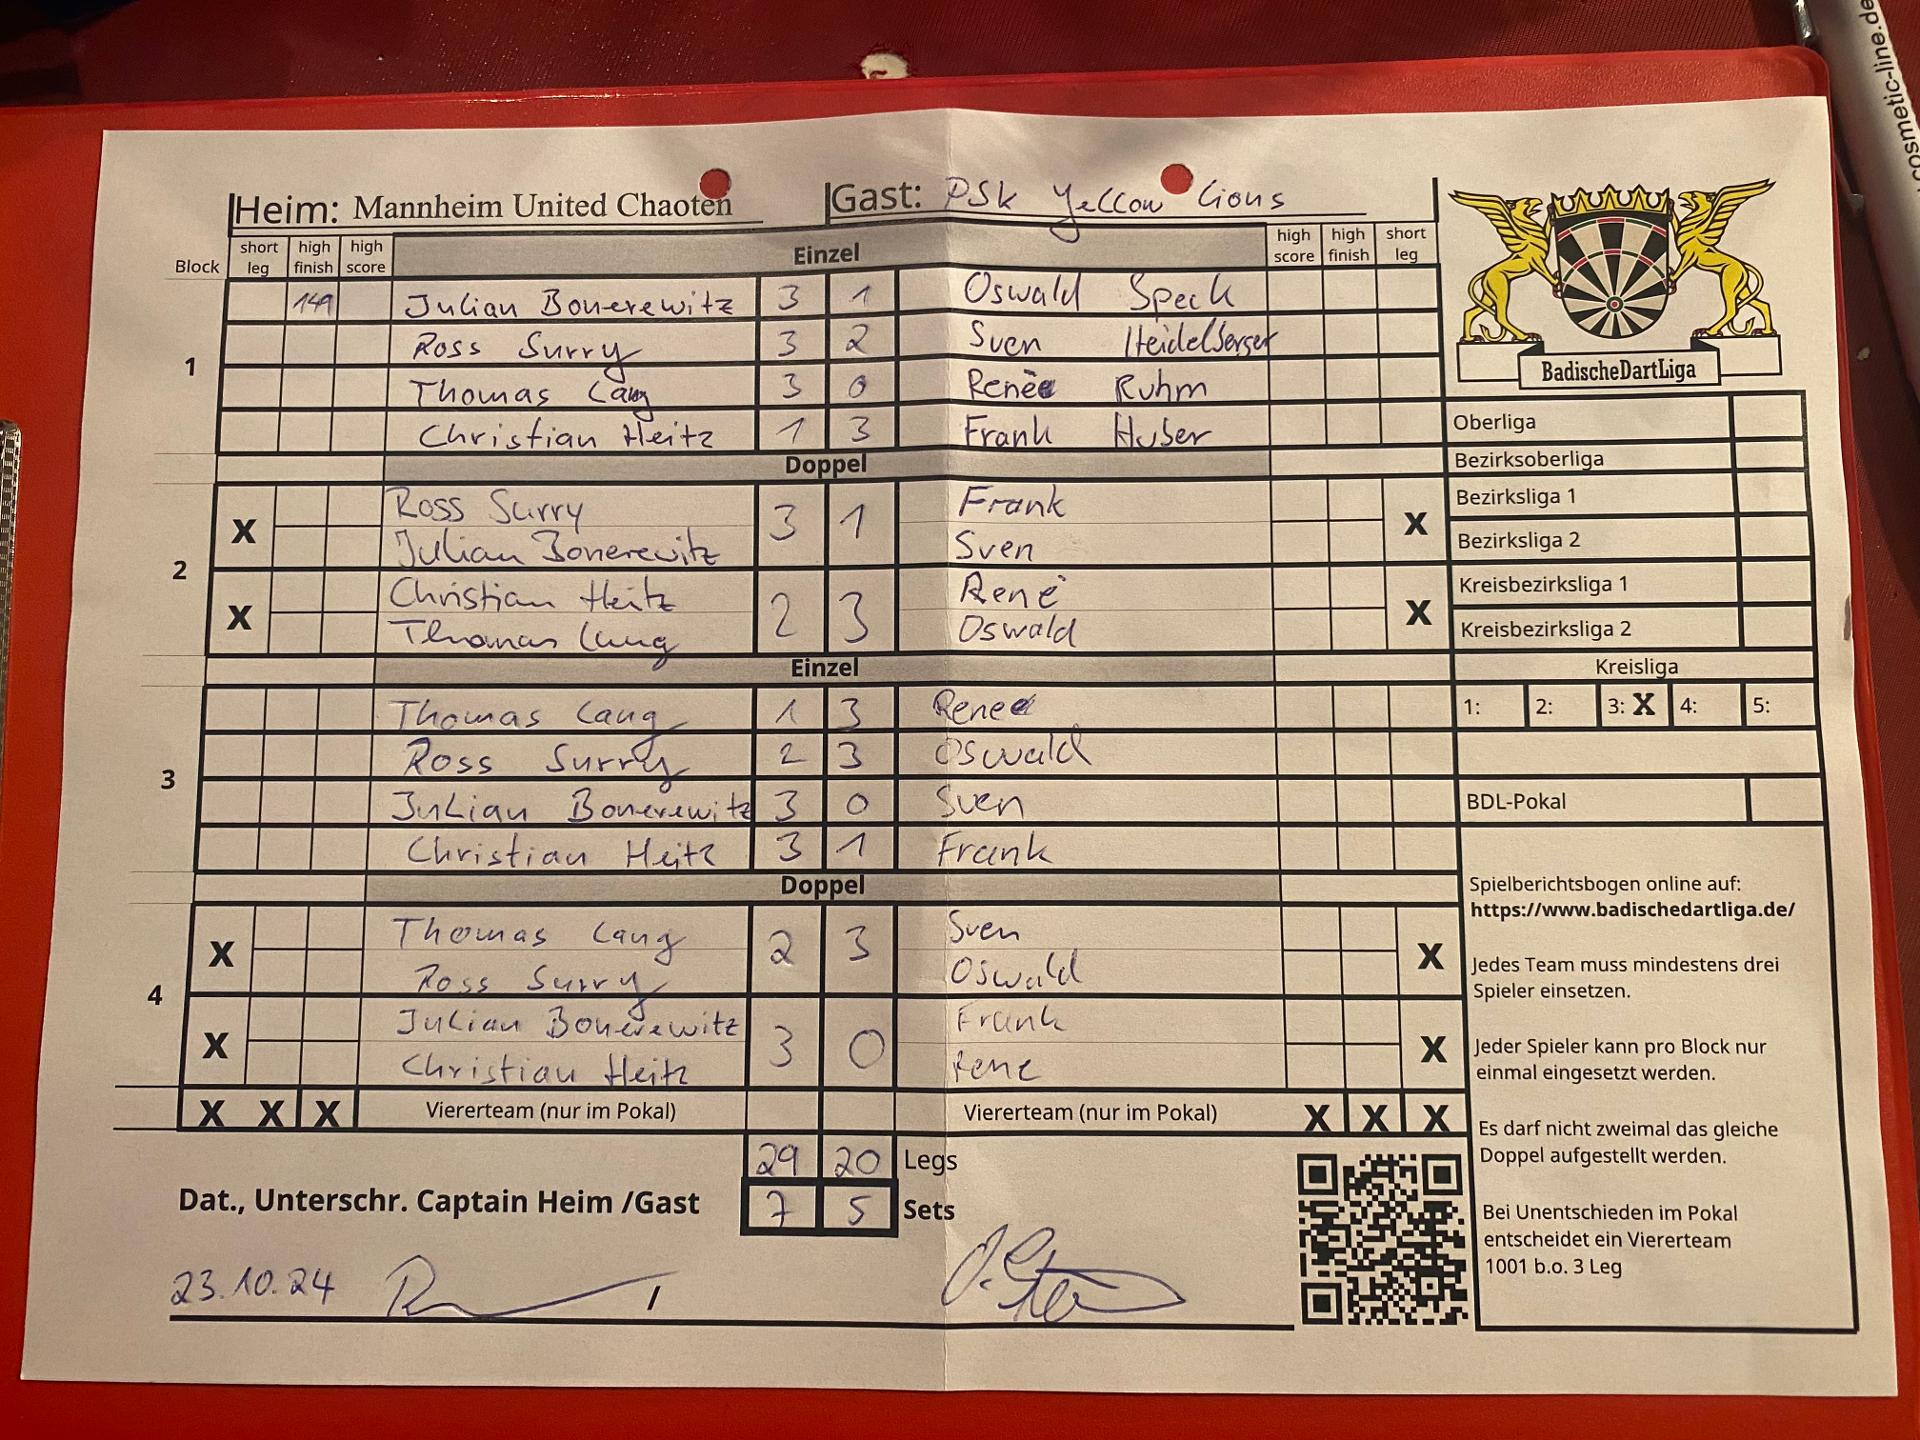 cosmetic-line.de
Heim: Mannheim United Chaoten Gast: PSK Yellow Lions
Block short leg high finish high score Einzel high score high finish short leg
1
149 Julian Bonerewitz 3 1 Oswald Speck
Ross Surry 3 2 Sven Heidelberger
Thomas Lang 3 0 Renée Ruhm
Christian Heitz 1 3 Frank Huber
Doppel
2
X Ross Surry 3 1 Frank X
Julian Bonerewitz Sven
X Christian Heitz 2 3 René X
Thomas Lang Oswald
Einzel
3
Thomas Lang 1 3 Renee
Ross Surry 2 3 Oswald
Julian Bonerewitz 3 0 Sven
Christian Heitz 3 1 Frank
Doppel
4
X Thomas Lang 2 3 Sven X
Ross Surry Oswald
X Julian Bonerewitz 3 0 Frank X
Christian Heitz Rene
X X X Viererteam (nur im Pokal) Viererteam (nur im Pokal) X X X
29 20 Legs
Dat., Unterschr. Captain Heim /Gast 7 5 Sets
23.10.24 /
BadischeDartLiga
Oberliga
Bezirksoberliga
Bezirksliga 1
Bezirksliga 2
Kreisbezirksliga 1
Kreisbezirksliga 2
Kreisliga
1: 2: 3: X 4: 5:
BDL-Pokal
Spielberichtsbogen online auf:
https://www.badischedartliga.de/
Jedes Team muss mindestens drei
Spieler einsetzen.
Jeder Spieler kann pro Block nur
einmal eingesetzt werden.
Es darf nicht zweimal das gleiche
Doppel aufgestellt werden.
Bei Unentschieden im Pokal
entscheidet ein Viererteam
1001 b.o. 3 Leg